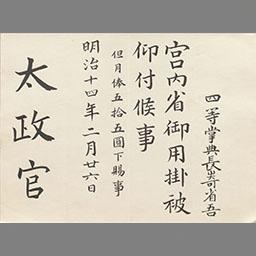 四等掌典長嵜省吾
宮内省御用掛被
仰付候事
但月俸五拾五圓下賜事
明治十四年二月廿六日
太政官